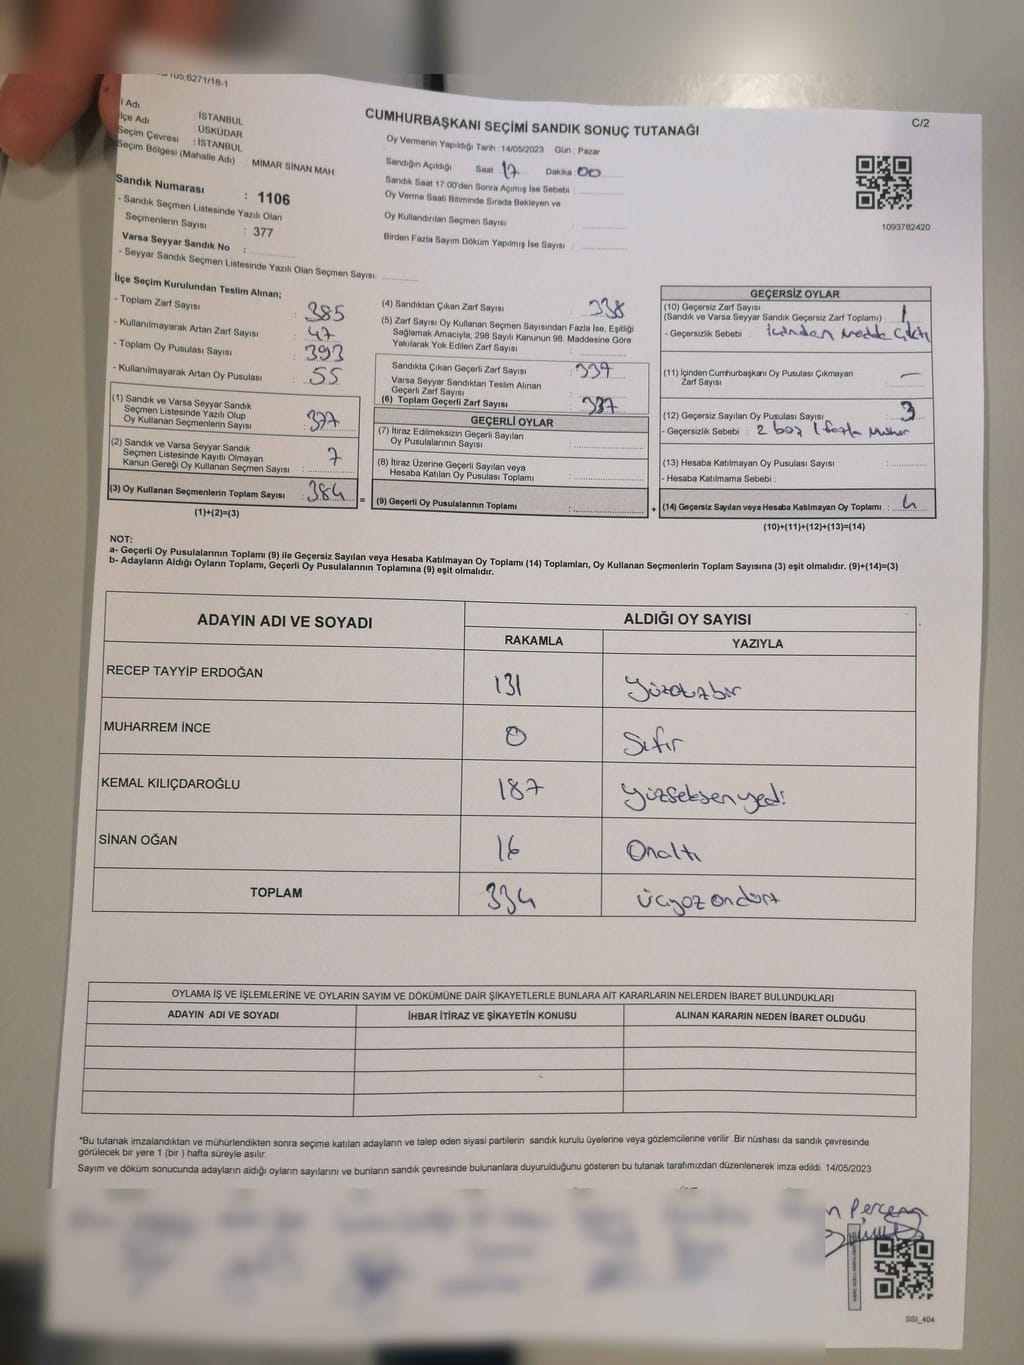 105,6271/18-1
İl Adı : İSTANBUL
İlçe Adı : ÜSKÜDAR
Seçim Çevresi : İSTANBUL
Seçim Bölgesi (Mahalle Adı) : MİMAR SİNAN MAH.
Sandık Numarası : 1106
- Sandık Seçmen Listesinde Yazılı Olan
Seçmenlerin Sayısı : 377
Varsa Seyyar Sandık No :
- Seyyar Sandık Seçmen Listesinde Yazılı Olan Seçmen Sayısı:
CUMHURBAŞKANI SEÇİMİ SANDIK SONUÇ TUTANAĞI
Oy Vermenin Yapıldığı Tarih : 14/05/2023 Gün : Pazar
Sandığın Açıldığı Saat 17 Dakika : 00
Sandık Saat 17:00'den Sonra Açımış İse Sebebi :
Oy Verme Saati Bitiminde Sırada Bekleyen ve
Oy Kullandırılan Seçmen Sayısı :
Birden Fazla Sayım Döküm Yapılmış İse Sayısı :
C/2
1093782420
İlçe Seçim Kurulundan Teslim Alınan;
- Toplam Zarf Sayısı : 385
- Kullanılmayarak Artan Zarf Sayısı : 47
- Toplam Oy Pusulası Sayısı : 393
- Kullanılmayarak Artan Oy Pusulası : 55
(1) Sandık ve Varsa Seyyar Sandık
Seçmen Listesinde Yazılı Olup
Oy Kullanan Seçmenlerin Sayısı : 377
(2) Sandık ve Varsa Seyyar Sandık
Seçmen Listesinde Kayıtlı Olmayan
Kanun Gereği Oy Kullanan Seçmen Sayısı : 7
(3) Oy Kullanan Seçmenlerin Toplam Sayısı : 384 =
(1)+(2)=(3)
(4) Sandıktan Çıkan Zarf Sayısı : 338
(5) Zarf Sayısı Oy Kullanan Seçmen Sayısından Fazla İse, Eşitliği
Sağlamak Amacıyla; 298 Sayılı Kanunun 98. Maddesine Göre
Yakılarak Yok Edilen Zarf Sayısı :
Sandıkta Çıkan Geçerli Zarf Sayısı : 337
Varsa Seyyar Sandıktan Teslim Alınan
Geçerli Zarf Sayısı :
(6) Toplam Geçerli Zarf Sayısı : 337
GEÇERLİ OYLAR
(7) İtiraz Edilmeksizin Geçerli Sayılan
Oy Pusulalarının Sayısı :
(8) İtiraz Üzerine Geçerli Sayılan veya
Hesaba Katılan Oy Pusulası Toplamı :
(9) Geçerli Oy Pusulalarının Toplamı : +
GEÇERSİZ OYLAR
(10) Geçersiz Zarf Sayısı
(Sandık ve Varsa Seyyar Sandık Geçersiz Zarf Toplamı) : 1
- Geçersizlik Sebebi : içinden madde Çıktı
(11) İçinden Cumhurbaşkanı Oy Pusulası Çıkmayan
Zarf Sayısı : —
(12) Geçersiz Sayılan Oy Pusulası Sayısı : 3
- Geçersizlik Sebebi : 2 boş 1 fazla Mühür
(13) Hesaba Katılmayan Oy Pusulası Sayısı :
- Hesaba Katılmama Sebebi :
(14) Geçersiz Sayılan veya Hesaba Katılmayan Oy Toplamı : 4
(10)+(11)+(12)+(13)=(14)
NOT:
a- Geçerli Oy Pusulalarının Toplamı (9) ile Geçersiz Sayılan veya Hesaba Katılmayan Oy Toplamı (14) Toplamları, Oy Kullanan Seçmenlerin Toplam Sayısına (3) eşit olmalıdır. (9)+(14)=(3)
b- Adayların Aldığı Oyların Toplamı, Geçerli Oy Pusulalarının Toplamına (9) eşit olmalıdır.
ADAYIN ADI VE SOYADI ALDIĞI OY SAYISI
RAKAMLA YAZIYLA
RECEP TAYYİP ERDOĞAN 131 Yüzotuzbir
MUHARREM İNCE 0 Sıfır
KEMAL KILIÇDAROĞLU 187 Yüzseksenyedi
SİNAN OĞAN 16 Onaltı
TOPLAM 334 üçyüz ondört
OYLAMA İŞ VE İŞLEMLERİNE VE OYLARIN SAYIM VE DÖKÜMÜNE DAİR ŞİKAYETLERLE BUNLARA AİT KARARLARIN NELERDEN İBARET BULUNDUKLARI
ADAYIN ADI VE SOYADI İHBAR İTİRAZ VE ŞİKAYETİN KONUSU ALINAN KARARIN NEDEN İBARET OLDUĞU
*Bu tutanak imzalandıktan ve mühürlendikten sonra seçime katılan adayların ve talep eden siyasi partilerin sandık kurulu üyelerine veya gözlemcilerine verilir .Bir nüshası da sandık çevresinde
görülecek bir yere 1 (bir ) hafta süreyle asılır.
Sayım ve döküm sonucunda adayların aldığı oyların sayılarını ve bunların sandık çevresinde bulunanlara duyurulduğunu gösteren bu tutanak tarafımızdan düzenlenerek imza edildi. 14/05/2023
SSI_404